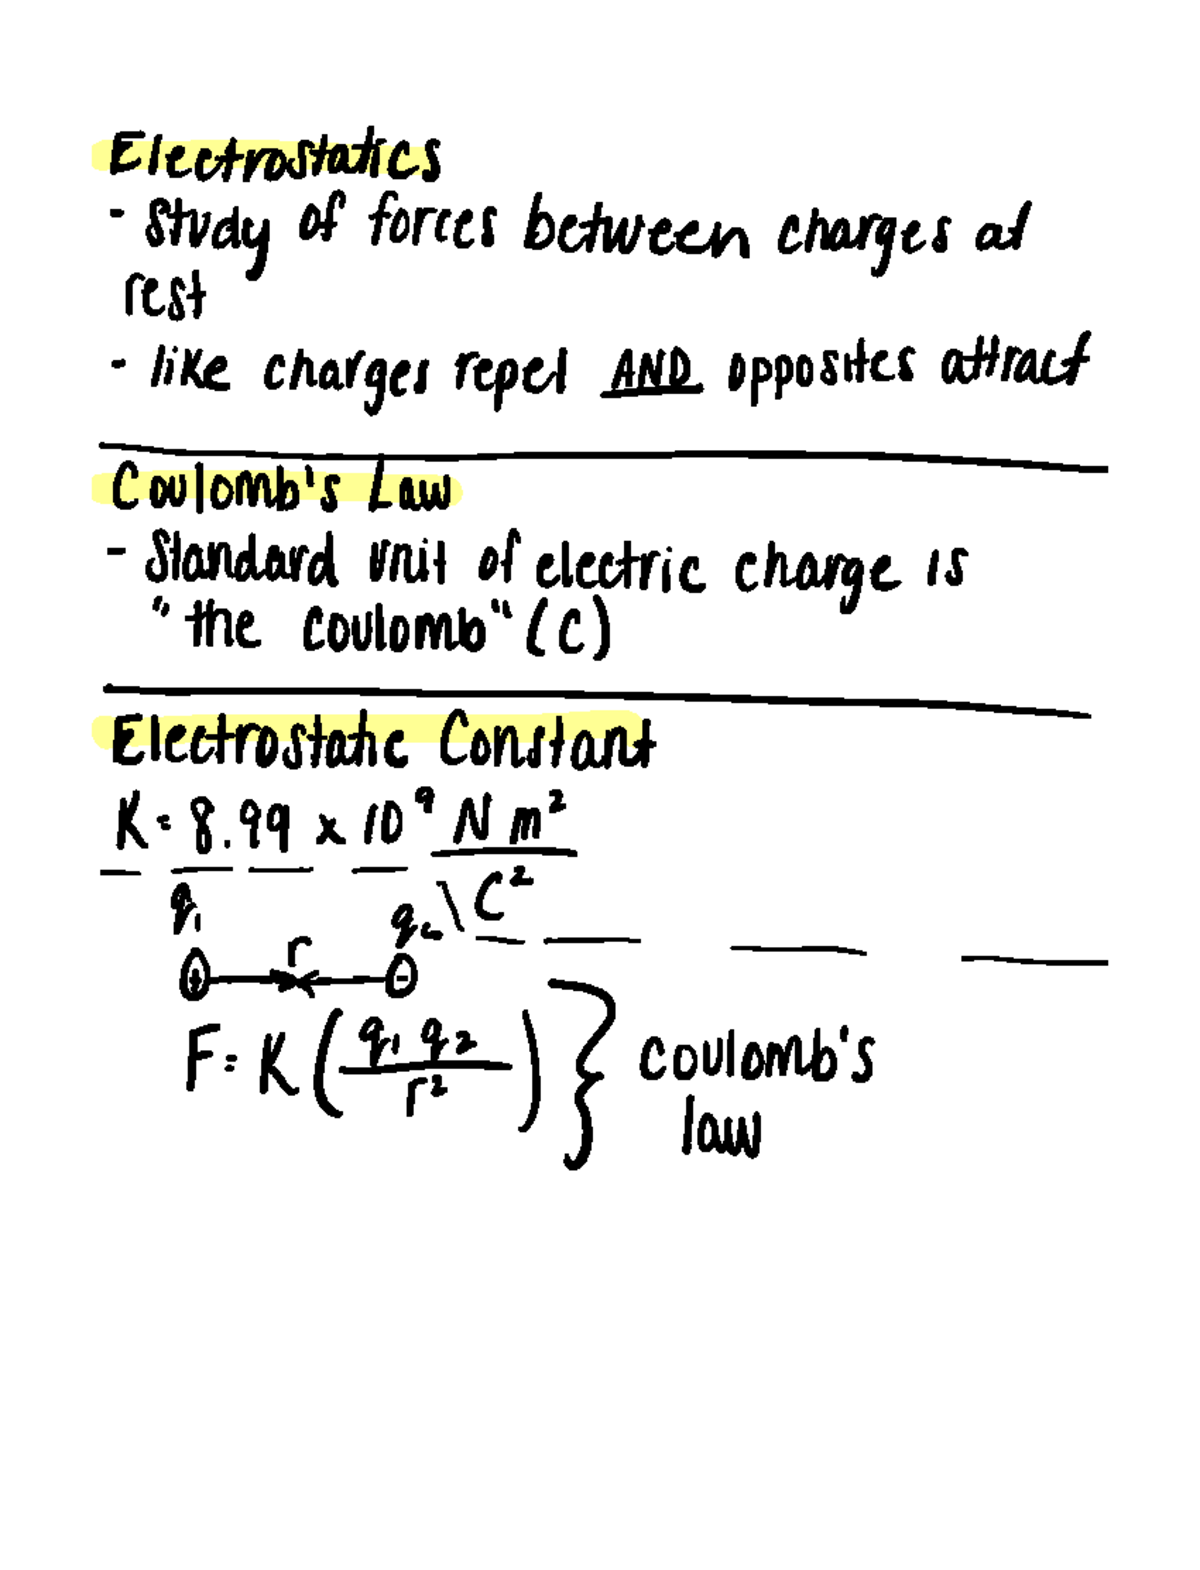 Electrostatics
- Study of forces between charges at
rest
- like charges repel AND opposites attract
Coulomb's Law
- Standard unit of electric charge is
"the coulomb" (C)
Electrostatic Constant
K = 8.99 x 10⁹ N m²
\ C²
q₁ q₂
r
+ -
F = K ( q₁ q₂ / r² ) } coulomb's
law